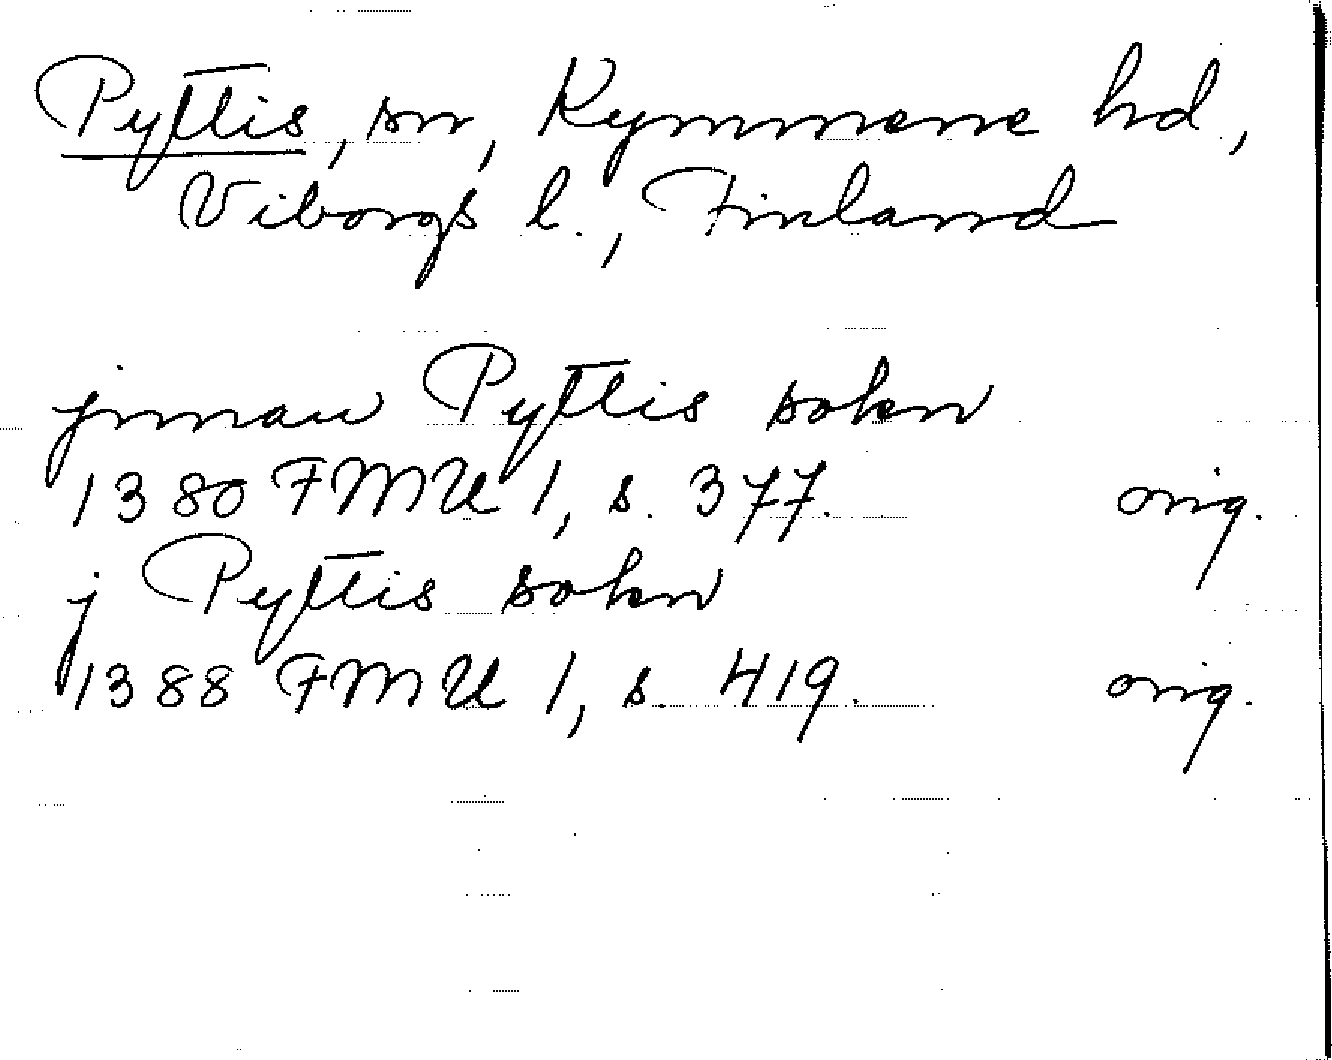 Pyttis, sn, Kymmene hd,
Viborgs l., Finland
jnnan Pyttis sokn
1380 FMU 1, s. 377. orig.
j Pyttis sokn
1388 FMU 1, s. 419. orig.